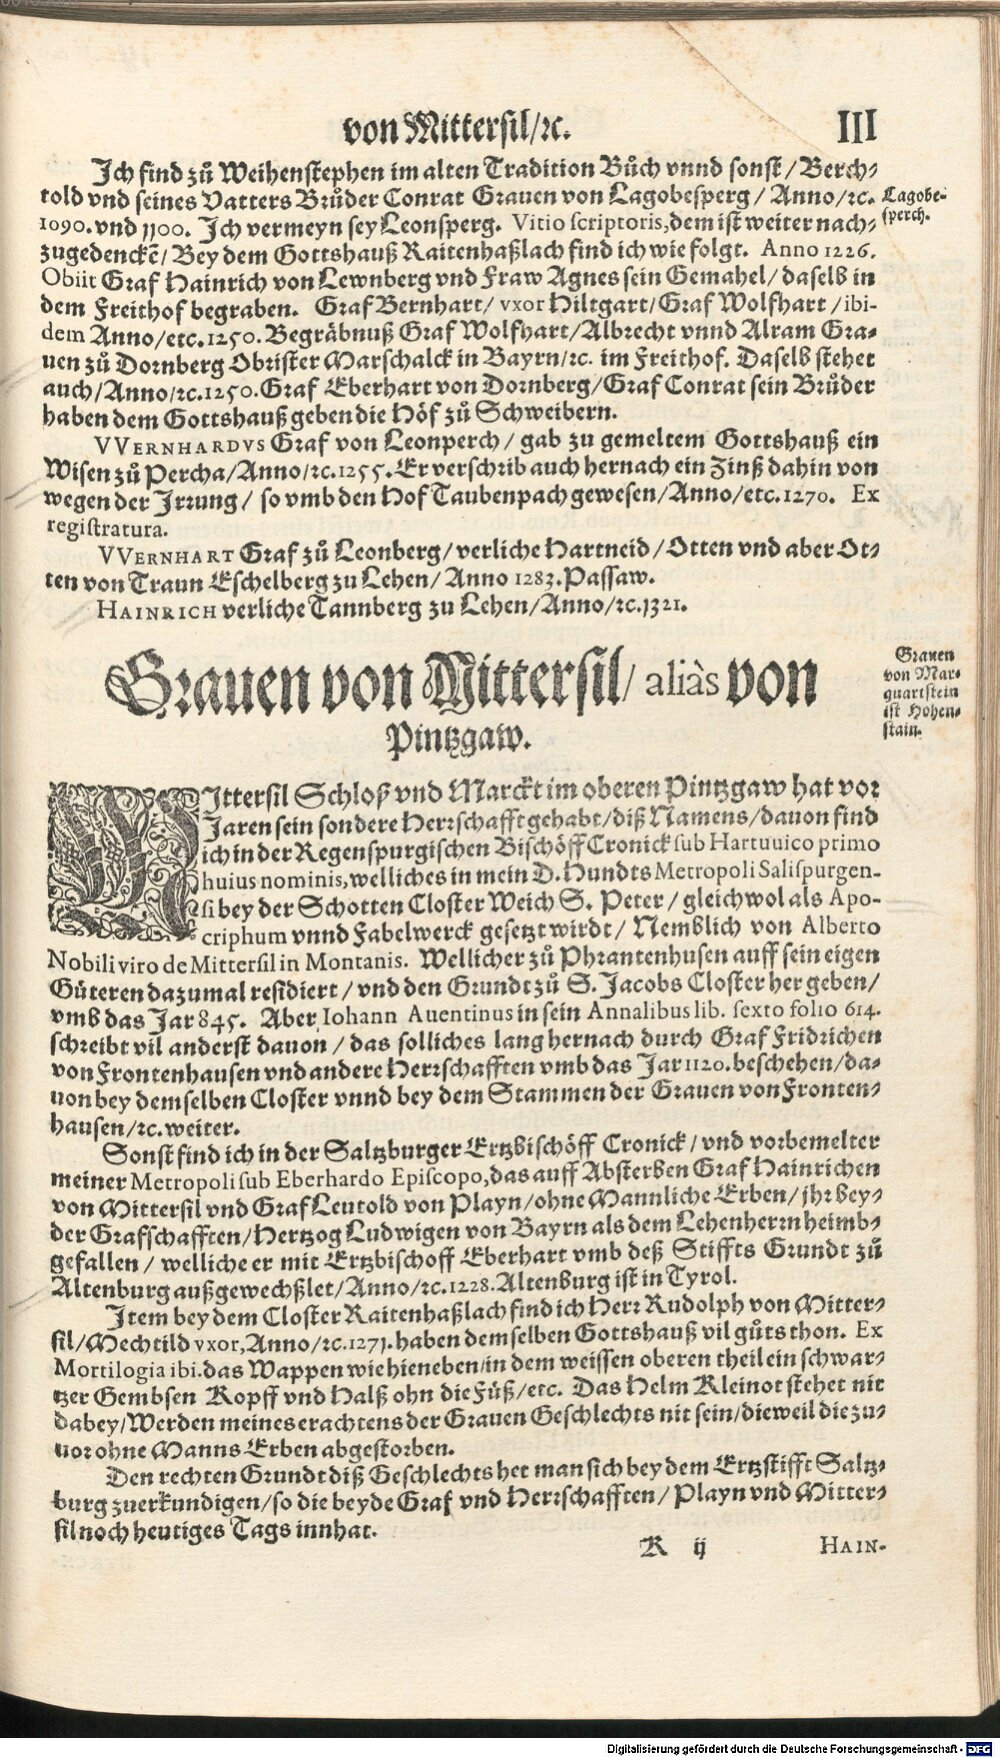 von Mittersil/ꝛc. 111
Ich find zů Weihenstephen im alten Tradition Bůch vnnd sonst / Berch⸗
told vnd seines Vatters Brůder Conrat Grauen von Lagobesperg / Anno/ꝛc.
Lagobe⸗
sperch.
1090. vnd 1100. Ich vermeyn sey Leonsperg. Vitio scriptoris, dem ist weiter nach⸗
zugedenckẽ/ Bey dem Gottshauß Raitenhaßlach find ich wie folgt. Anno 1226.
Obiit Graf Hainrich von Lewnberg vnd Fraw Agnes sein Gemahel/ daselb in
dem Freithof begraben. Graf Bernhart/ vxor Hiltgart/ Graf Wolfhart / ibi-
dem Anno/etc. 1250. Begräbnuß Graf Wolfhart/ Albrecht vnnd Alram Gra⸗
uen zů Dornberg Obrister Marschalck in Bayrn/ꝛc. im Freithof. Daselb stehet
auch/Anno/ꝛc. 1250. Graf Eberhart von Dornberg/ Graf Conrat sein Brůder
haben dem Gottshauß geben die Höf zů Schweibern.
VVERNHARDVS Graf von Leonperch / gab zu gemeltem Gottshauß ein
Wisen zů Percha/Anno/ꝛc. 1255. Er verschrib auch hernach ein Zinß dahin von
wegen der Irrung / so vmb den Hof Taubenpach gewesen/Anno/etc. 1270. Ex
registratura.
VVERNHART Graf zů Leonberg/ verliche Hartneid / Otten vnd aber Ot⸗
ten von Traun Eschelberg zu Lehen/ Anno 1283. Passaw.
HAINRICH verliche Tannberg zu Lehen/Anno/ꝛc. 1321.
Grauen von Mittersil/ aliàs von
Pintzgaw.
Grauen
von Mar⸗
quartstein
ist Hohen⸗
stain.
MIttersil Schloß vnd Marckt im oberen Pintzgaw hat vor
Jaren sein sondere Herrschafft gehabt/ diß Namens/ dauon find
ich in der Regenspurgischen Bischöff Cronick sub Hartuuico primo
huius nominis, welliches in mein D. Hundts Metropoli Salispurgen-
si bey der Schotten Closter Weich S. Peter / gleichwol als Apo-
criphum vnnd Fabelwerck gesetzt wirdt / Nemblich von Alberto
Nobili viro de Mittersil in Montanis. Wellicher zů Phrantenhusen auff sein eigen
Güteren dazumal residiert / vnd den Grundt zů S. Jacobs Closter her geben/
vmb das Jar 845. Aber Iohann Auentinus in sein Annalibus lib. sexto folio 614.
schreibt vil anderst dauon / das solliches lang hernach durch Graf Fridrichen
von Frontenhausen vnd andere Herrschafften vmb das Jar 1120. beschehen/ da⸗
uon bey demselben Closter vnnd bey dem Stammen der Grauen von Fronten⸗
hausen /ꝛc. weiter.
Sonst find ich in der Saltzburger Ertzbischöff Cronick / vnd vorbemelter
meiner Metropoli sub Eberhardo Episcopo, das auff Absterben Graf Hainrichen
von Mittersil vnd Graf Leutold von Playn/ ohne Mannliche Erben/ jhr bey⸗
der Grafschafften/ Hertzog Ludwigen von Bayrn als dem Lehenherrn heimb⸗
gefallen / welliche er mit Ertzbischoff Eberhart vmb deß Stiffts Grundt zů
Altenburg außgewechßlet/ Anno/ꝛc. 1228. Altenburg ist in Tyrol.
Item bey dem Closter Raitenhaßlach find ich Herr Rudolph von Mitter⸗
sil/Mechtild vxor, Anno/ꝛc. 1271. haben demselben Gottshauß vil gůts thon. Ex
Mortilogia ibi. das Wappen wie hieneben/in dem weissen oberen theil ein schwar⸗
tzer Gembsen Kopff vnd Halß ohn die Füß/etc. Das Helm Kleinot stehet nit
dabey/Werden meines erachtens der Grauen Geschlechts nit sein/dieweil die zu⸗
uor ohne Manns Erben abgestorben.
Den rechten Grundt diß Geschlechts het man sich bey dem Ertzstifft Saltz⸗
burg zuerkundigen/so die beyde Graf vnd Herrschafften / Playn vnd Mitter⸗
sil noch heutiges Tags innhat.
K ij HAIN-
Digitalisierung gefördert durch die Deutsche Forschungsgemeinschaft - DFG